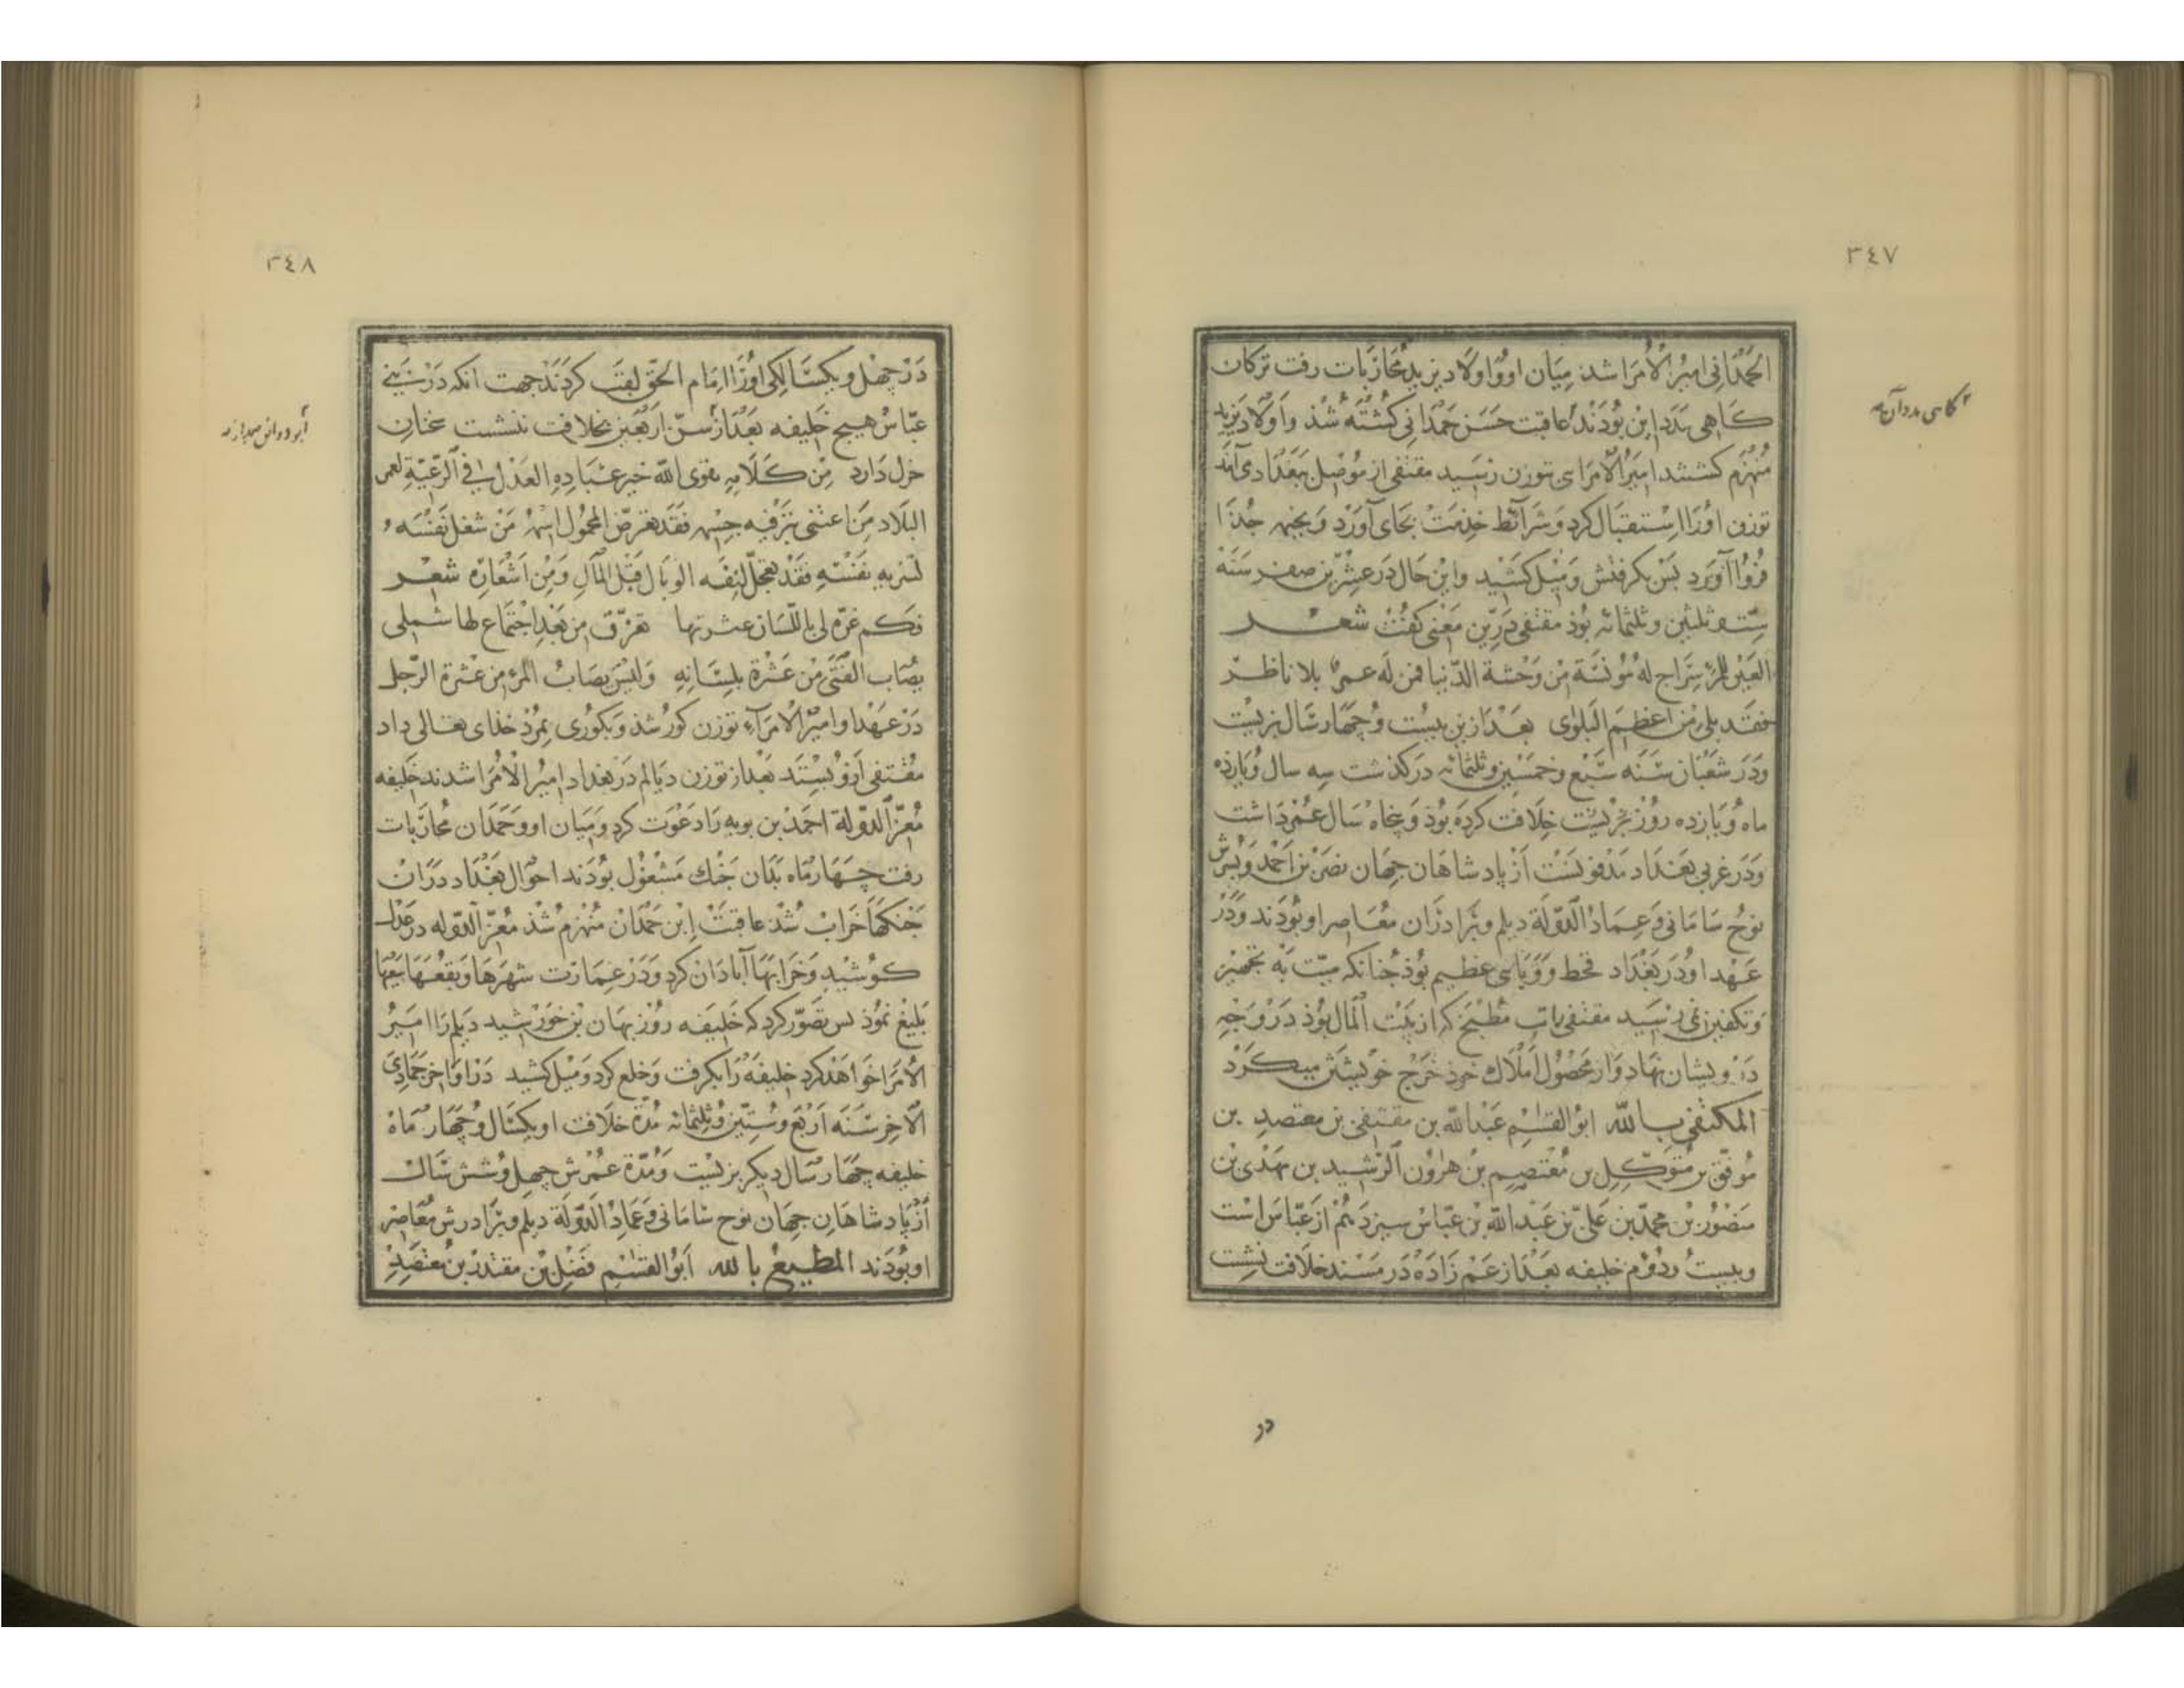 ٣٤٧
الحمدانی امیر الأمرا شد میان او و اولاد یزید محاربات رفت ترکان
کاهی مدد این بودند عاقبت حسن حمدانی کشته شذ و اولاد یزید
منهزم کشتند امیر الامرای بتوزن رسید مقتفی از موصل ببغداد می آمد
توزن اورا استقبال کرد و شرائط خدمت بجای آورد و بخیمه جذا
فروآورد بس بکرفتش و میل کشید و این حال در عشرین صفر سنة
ستـ و ثلثین و ثلثمائه بوذ مقتفی درین معنی کفت شعـر
العین للمرء سراج له مؤنسة من وحشة الدنیا فمن له عمر بلا ناظـر
فقد بلی من اعظم البلوی بعد ازین بیست و چهار سال بزیست
و در شعبان سنه سبع و خمسین و ثلثمائه درکذشت سه سال و یازده
ماه و یازده روز خلافت کرده بوذ و پنجاه سال عمر داشت
و در غربی بغداد مدفونست از پادشاهان جهان نصر بن احمد و پسرش
نوح سامانی و عماد الدولة دیلم و برادران معاصر او بودند و در
عهد او در بغداد قحط و وبایی عظیم بوذ جنانکه میت به تجهیز
و تکفین نمی رسید مقتفی باب مطبخ که از بیت المال بوذ در وجه
درویشان نهاد و از محصول املاک خوذ خرج خویشتن میکرد
المکتفی بـالله ابو القسم عبدالله بن مقتفی بن معتصد بن
موفق بن متوکل بن معتصم بن هرون الرشید بن مهدی بن
منصور بن محمد بن علی بن عبدالله بن عباس سیزدهم از عباس است
و بیست و دوم خلیفه بعد از عم زاده در مسند خلافت نشست
در
٣٤٨
در چهل و یکسالکی اورا امام الحق لقب کردند جهت انکه در بنی
عباس هیچ خلیفه بعد از سن اربعین بخلافت ننشست سخنان
جزل دارد من کلامه تقوی الله خیر عباده العدل فی الرعیة لعمر
البلاد من اعتنی بترفیه جسمه فقد تعرض المحمول اسمه من شغل نفسه
نفسه فقد تعجل لنفسه الوبال قبل المآل و من اشعاره شعـر
فکم غرة لی باللسان عثرتها تفرق من بعد اجتماع لها شملی
یصاب الفتی من عثرة بلسانه ولیس یصاب المرء من عثرة الرجل
در عهد او امیر الامراء توزن کور شذ و بکوری بمرد خذای تعالی داد
مقتفی ازو بستد بعد از توزن دیالم در بغداد امیر الامرا شدند خلیفه
معز الدولة احمد بن بویه را دعوت کرد و میان او و حمدان محاربات
رفت چهار ماه بدان جنک مشغول بودند احوال بغداد در ان
جنکها خراب شذ عاقبت ابن حمدان منهزم شذ معز الدوله در عدل
کوشید و خرابیها آبادان کرد و در عمارت شهرها و بقعها سعیها
بلیغ نموذ بس تصور کرد که خلیفه روزبهان بن خورشید دیلم را امیر
الامرا خواهد کرد خلیفه را بکرفت و خلع کرد و میل کشید در اواخر جمادی
الآخر سنه اربع و ستین و ثلثمائه مدة خلافت او یکسال و چهار ماه
خلیفه چهار سال دیکر بزیست و مدة عمرش چهل و شش سال
از پادشاهان جهان نوح سامانی و عماد الدولة دیلم و برادرش معاصر
او بودند المطیع بالله ابو القسم فضل بن مقتدر بن معتضد